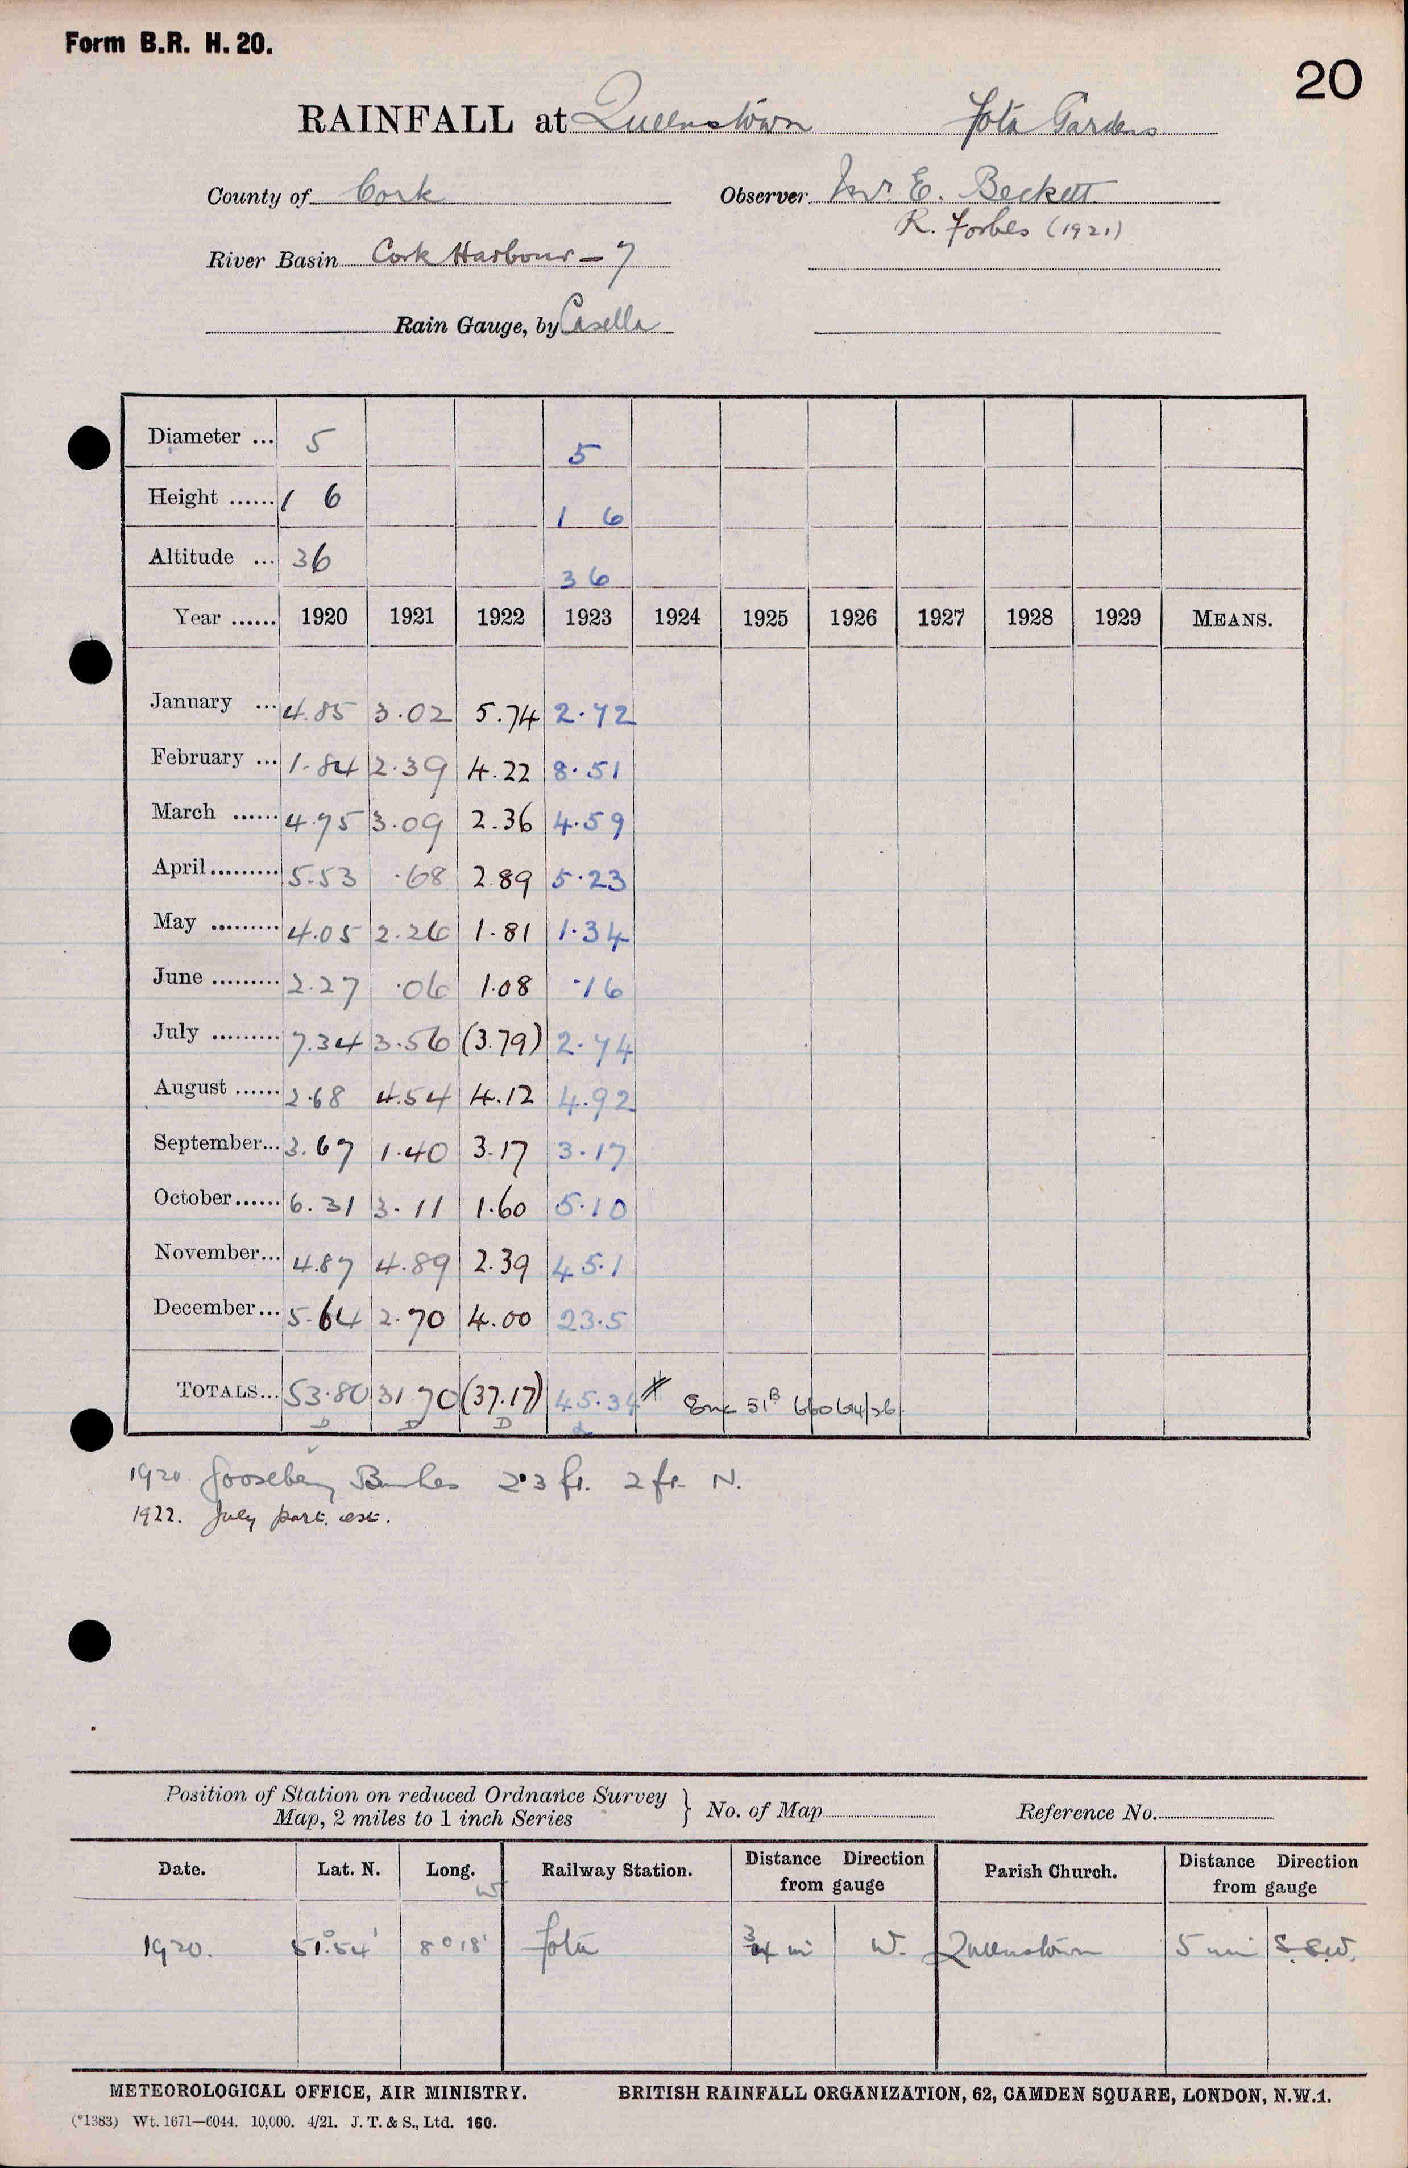 Form B.R. H. 20.
20
RAINFALL at Queenstown Fota Gardens
County of Cork Observer Mr. E. Beckett
R. Forbes (1921)
River Basin Cork Harbour – 7
Rain Gauge, by Casella
Diameter ... 5 5
Height ...... 1 6 1 6
Altitude ... 36 36
Year ...... 1920 1921 1922 1923 1924 1925 1926 1927 1928 1929 MEANS.
January ... 4.85 3.02 5.74 2.72
February ... 1.84 2.39 4.22 8.51
March ...... 4.75 3.09 2.36 4.59
April ......... 5.53 .68 2.89 5.23
May ......... 4.05 2.26 1.81 1.34
June ......... 2.27 .06 1.08 .16
July ......... 7.34 3.56 (3.79) 2.74
August ...... 2.68 4.54 4.12 4.92
September... 3.67 1.40 3.17 3.17
October...... 6.31 3.11 1.60 5.10
November... 4.87 4.89 2.39 45.1
December... 5.64 2.70 4.00 23.5
TOTALS... 53.80 31 70 (37.17) 45.34
D D D d
1920. Gooseberry Bushes 2.3 ft. 2 ft. N.
1922. July part. est.
Position of Station on reduced Ordnance Survey
Map, 2 miles to 1 inch Series } No. of Map Reference No.
Date. Lat. N. Long. W Railway Station. Distance Direction from gauge Parish Church. Distance Direction from gauge
1920. 51°54' 8°18' Fota 3/4 mi W. Queenstown 5 mi S.S.W.
METEOROLOGICAL OFFICE, AIR MINISTRY. BRITISH RAINFALL ORGANIZATION, 62, CAMDEN SQUARE, LONDON, N.W.1.
(*1383) Wt. 1671—6044. 10,000. 4/21. J. T. & S., Ltd. 160.